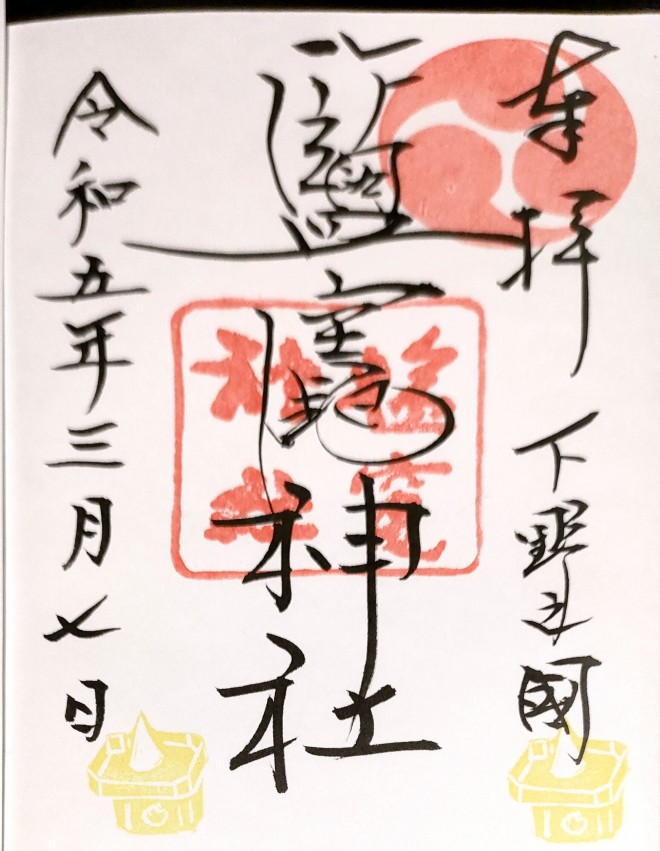 奉拝 下野之國
鹽竈神社
令和五年三月七日